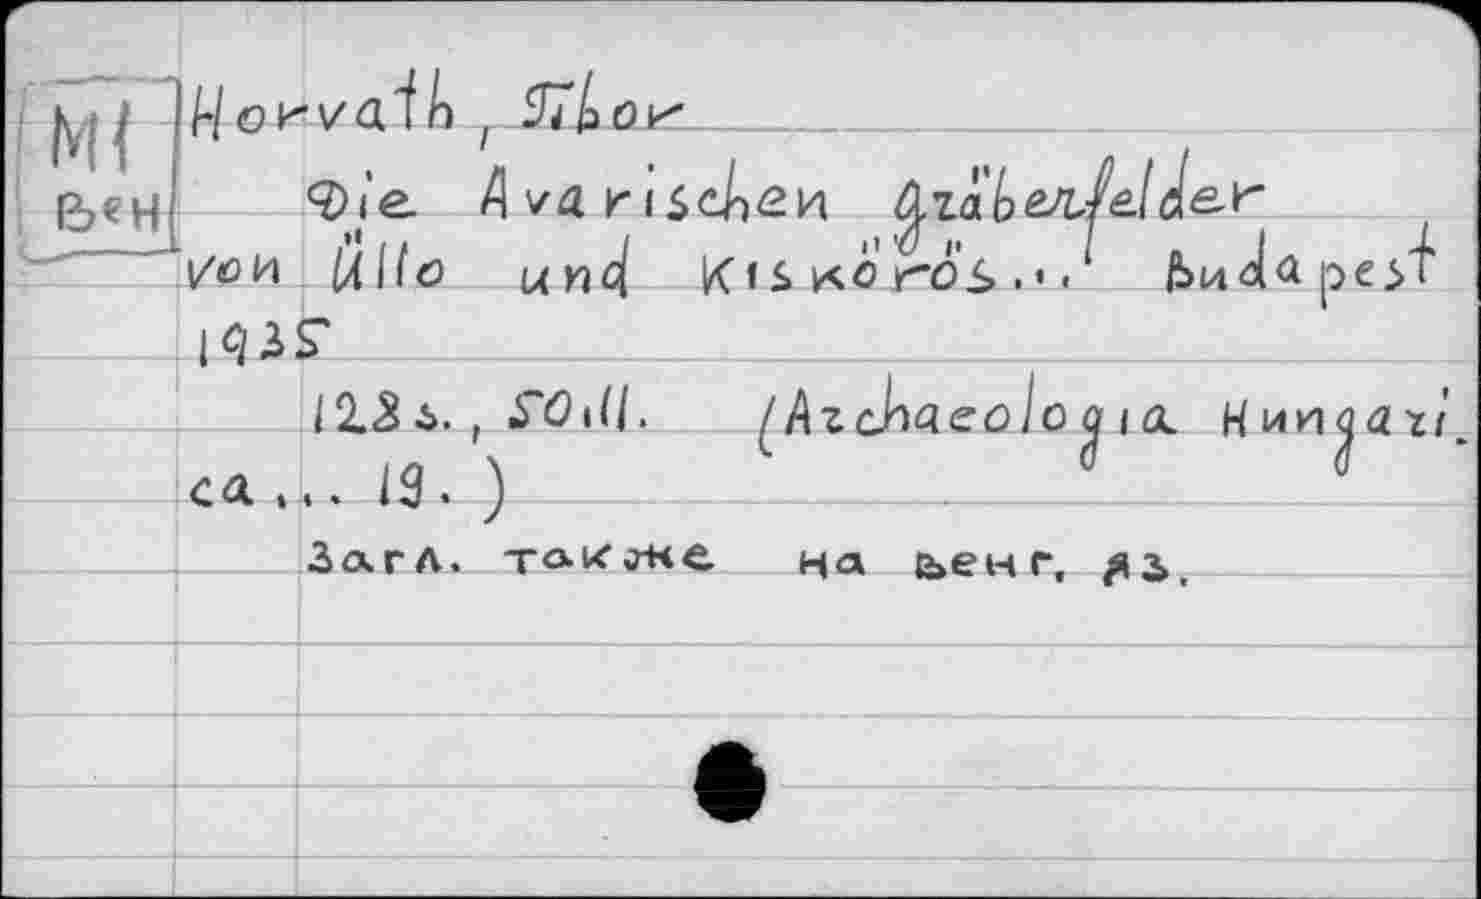 МI
Вен
Horvath, Tibor
Die Avarischen Gräberfelder
von Üllo und Kiskörös... Budapest
1935
128 s., 50 ill. (Archaeologia Hungari.
ca... 19.)
Загл. также на венг. яз.